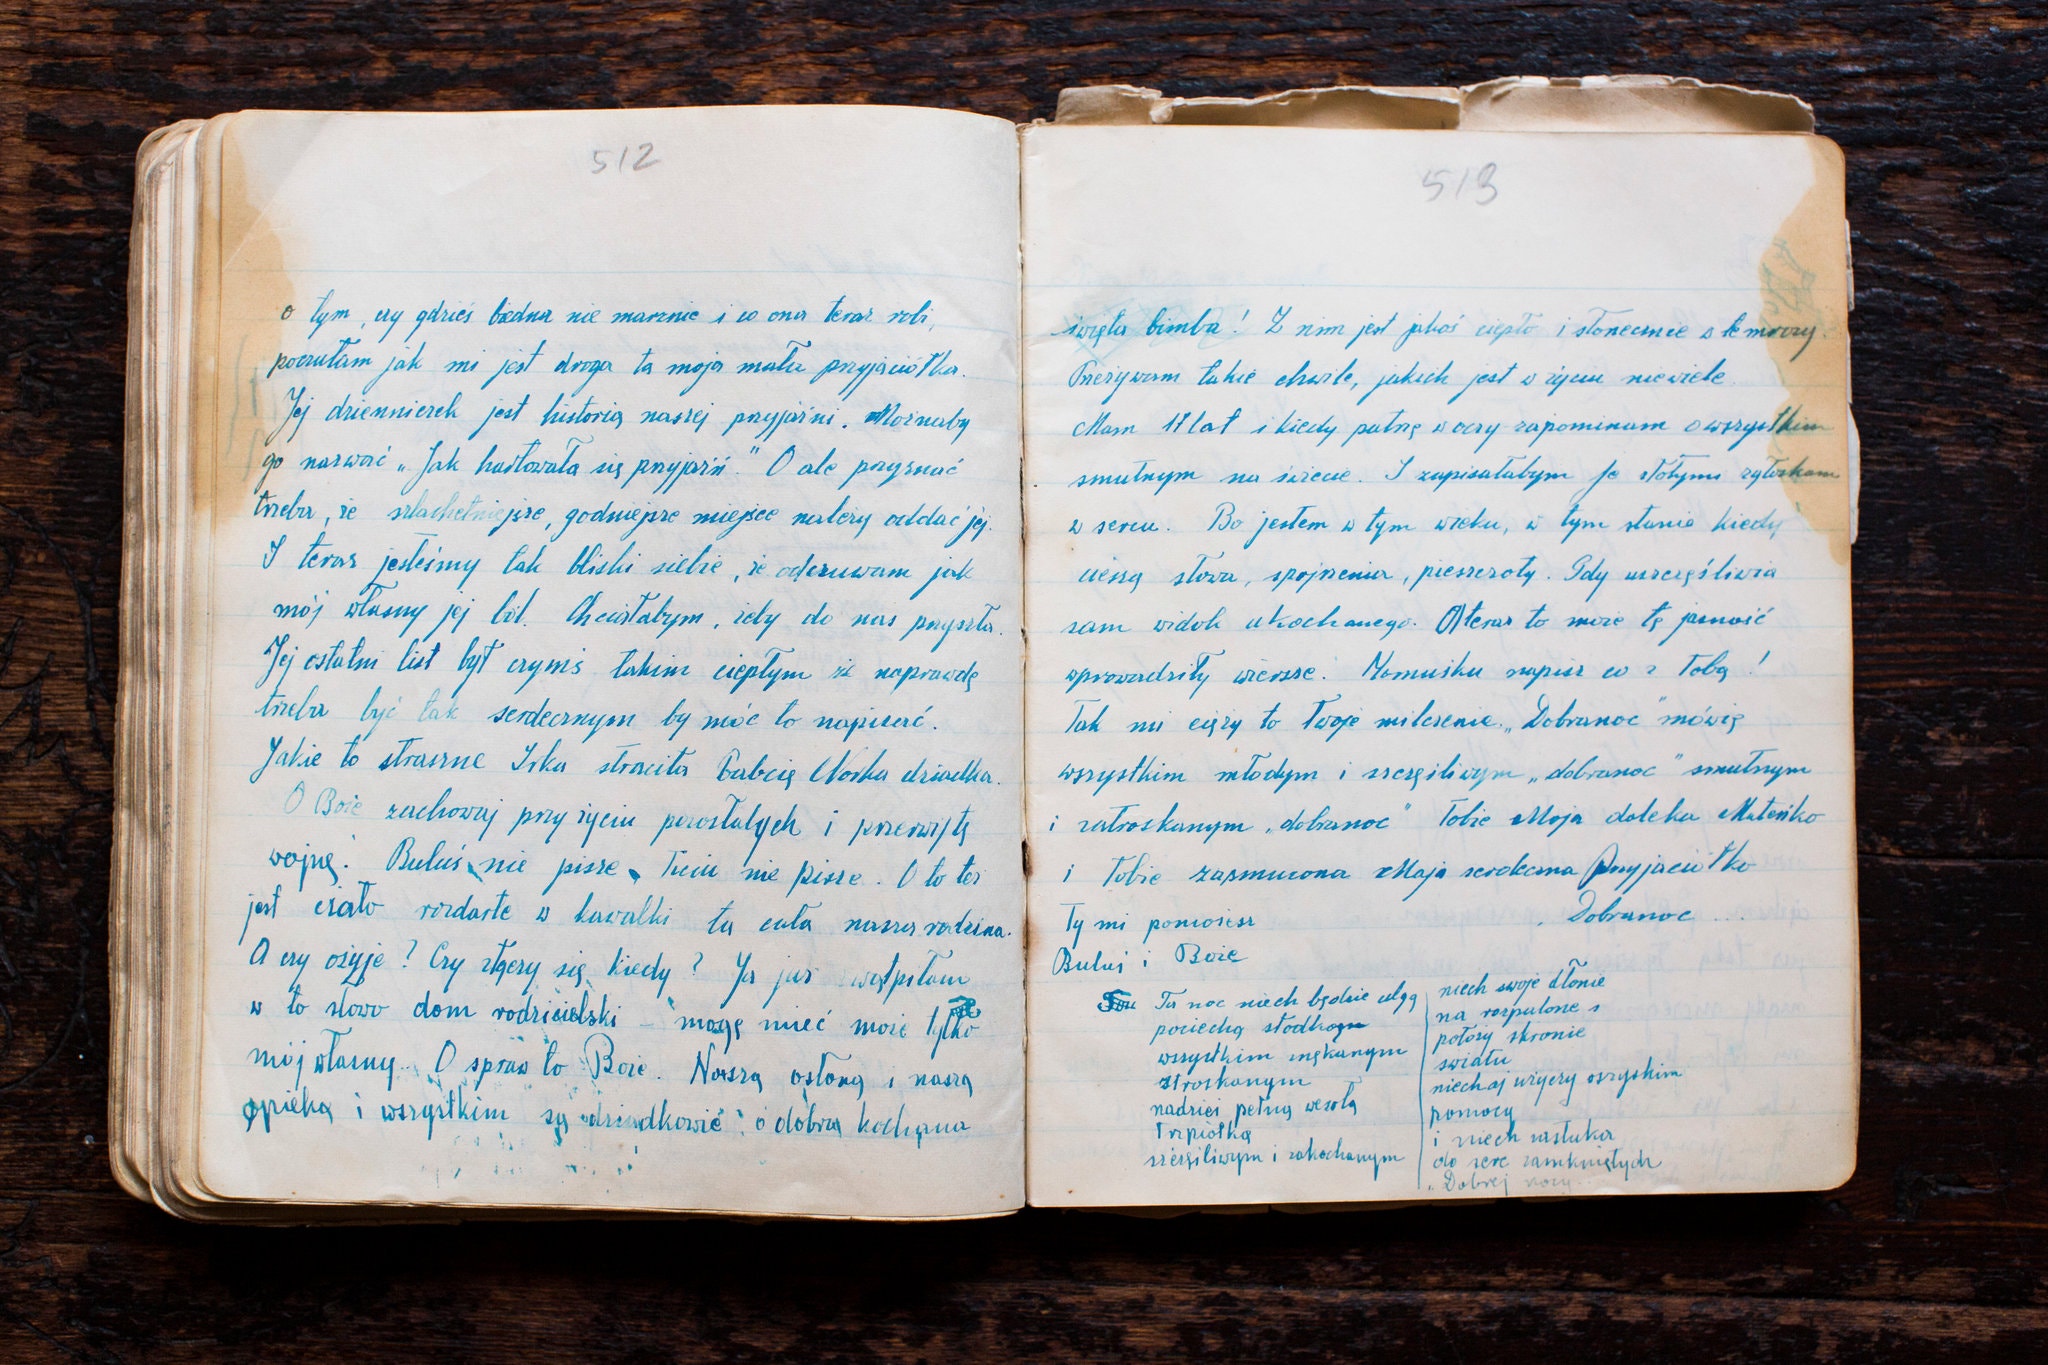 512
o tym, czy gdzieś biedna nie marznie i co ona teraz robi,
poczułam jak mi jest droga ta moja mała przyjaciółka.
Jej dzienniczek jest historią naszej przyjaźni. Możnaby
go nazwać „Jak hartowała się przyjaźń." O ale przyznać
trzeba, że szlachetniejsze, godniejsze miejsce należy oddać jej.
I teraz jesteśmy tak bliski siebie, że odczuwam jak
mój własny jej ból. Chciałabym, żeby do nas przyszła.
Jej ostatni list był czymś takim ciepłym że naprawdę
trzeba być tak serdecznym by móc to napisać.
Jakie to straszne Irka straciła Babcię Norka dziadka.
O Boże zachowaj przy życiu pozostałych i przerwij tę
wojnę. Buluś nie pisze, Ticiu nie pisze. O to też
jest ciało rozdarte w kawałki ta cała nasza rodzina.
A czy ożyje? Czy złączy się kiedy? Ja już zwątpiłam
w to słowo dom rodzicielski – mogę mieć może tylko
mój własny. O spraw to Boże. Naszą osłoną i naszą
opieką i wszystkim są dziadkowie o dobra kochana
513
święta bimba! Z nim jest jakoś ciepło i słonecznie s te mrozy.
Przeżywam takie chwile, jakich jest w życiu niewiele.
Mam 17 lat i kiedy patrzę w oczy zapominam o wszystkim
smutnym na świecie. I zapisałabym Je złotymi zgłoskami
w sercu. Bo jestem w tym wieku, w tym stanie kiedy
cieszą słowa, spojrzenia, pieszczoty. Gdy uszczęśliwia
sam widok ukochanego. A teraz to może tę jasność
wprowadziły wiersze. Mamuśku napisz co z Tobą!
Tak mi ciąży to Twoje milczenie. „Dobranoc" mówię
wszystkim młodym i szczęśliwym „dobranoc" smutnym
i zatroskanym „dobranoc" Tobie Moja daleka Mateńko
i Tobie zasmucona Moja serdeczna Przyjaciółko
Dobranoc
Ty mi pomożesz
Buluś i Boże
Ta noc niech będzie ulgą
pociechą słodką
wszystkim znękanym
stroskanym
nadziei pełną wesołą
trzpiotką
szczęśliwym i zakochanym
niech swoje dłonie
na rozpalone s
położy skronie
światu
niechaj użyczy wszystkim
pomocy
i niech zastuka
do serc zamkniętych
„Dobrej nocy"